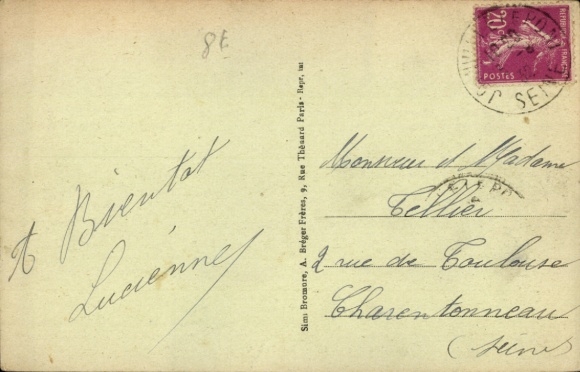 8E
A Bientot
Lucienne
Simi Bromure, A. Bréger Frères, 9, Rue Thénard Paris - Repr. int
20c
REPUBLIQUE FRANÇAISE
POSTES
SEINE
Monsieur et Madame
Tellier
2 rue de Toulouse
Charentonneau
(Seine)